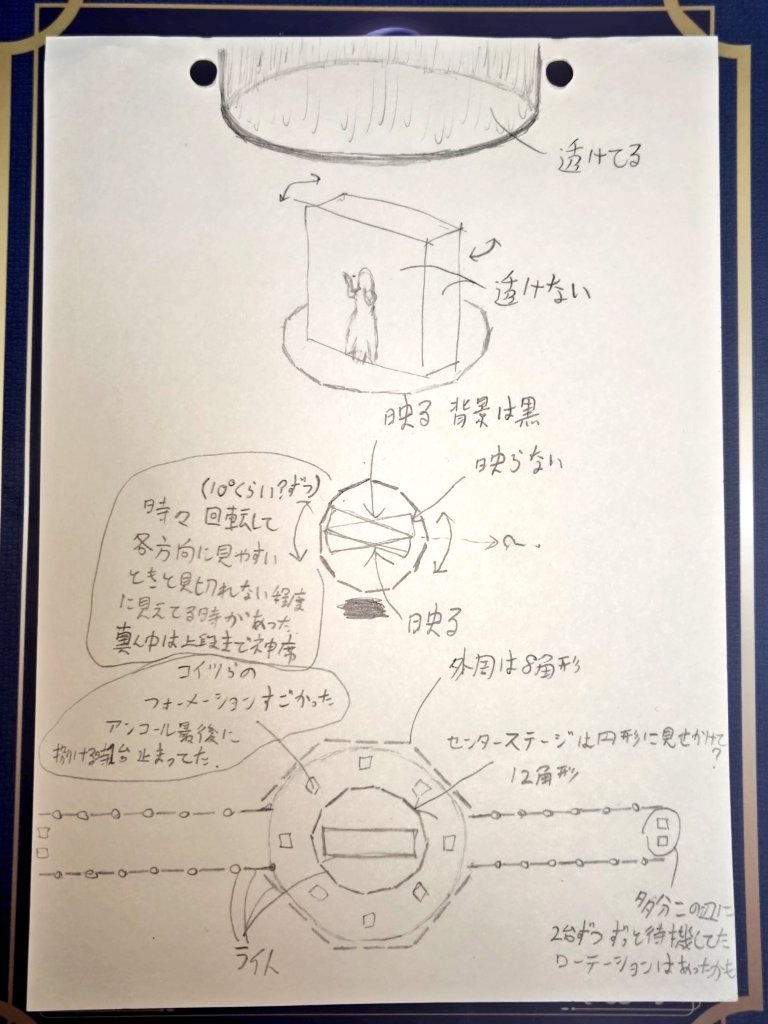 透けてる
透けない
映る 背景は黒
映らない
(10°くらい?ずつ)
時々 回転して
各方向に見やすい
ときと見切れない程度
に見えてる時があった
真ん中は上段まで神席
映る
外周は8角形
コイツらの
フォーメーションすごかった
アンコール最後に
捌ける時1台 止まってた.
センターステージは円形に見せかけて
?
12角形
ライト
タダ分この辺に
2台ずつ ずっと待機してた
ローテーションはあったかも